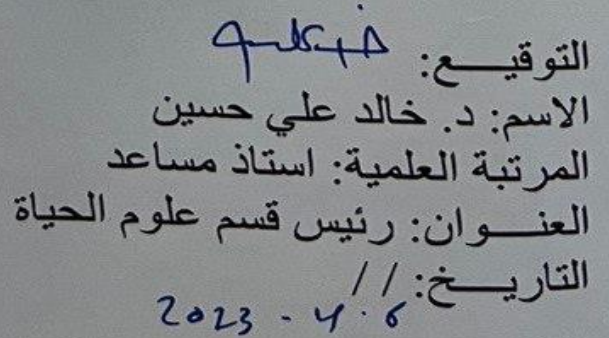 التوقيـــع:
الاسم: د. خالد علي حسين
المرتبة العلمية: استاذ مساعد
العنـــوان: رئيس قسم علوم الحياة
التاريـــخ: / /
2023 - 4 . 6